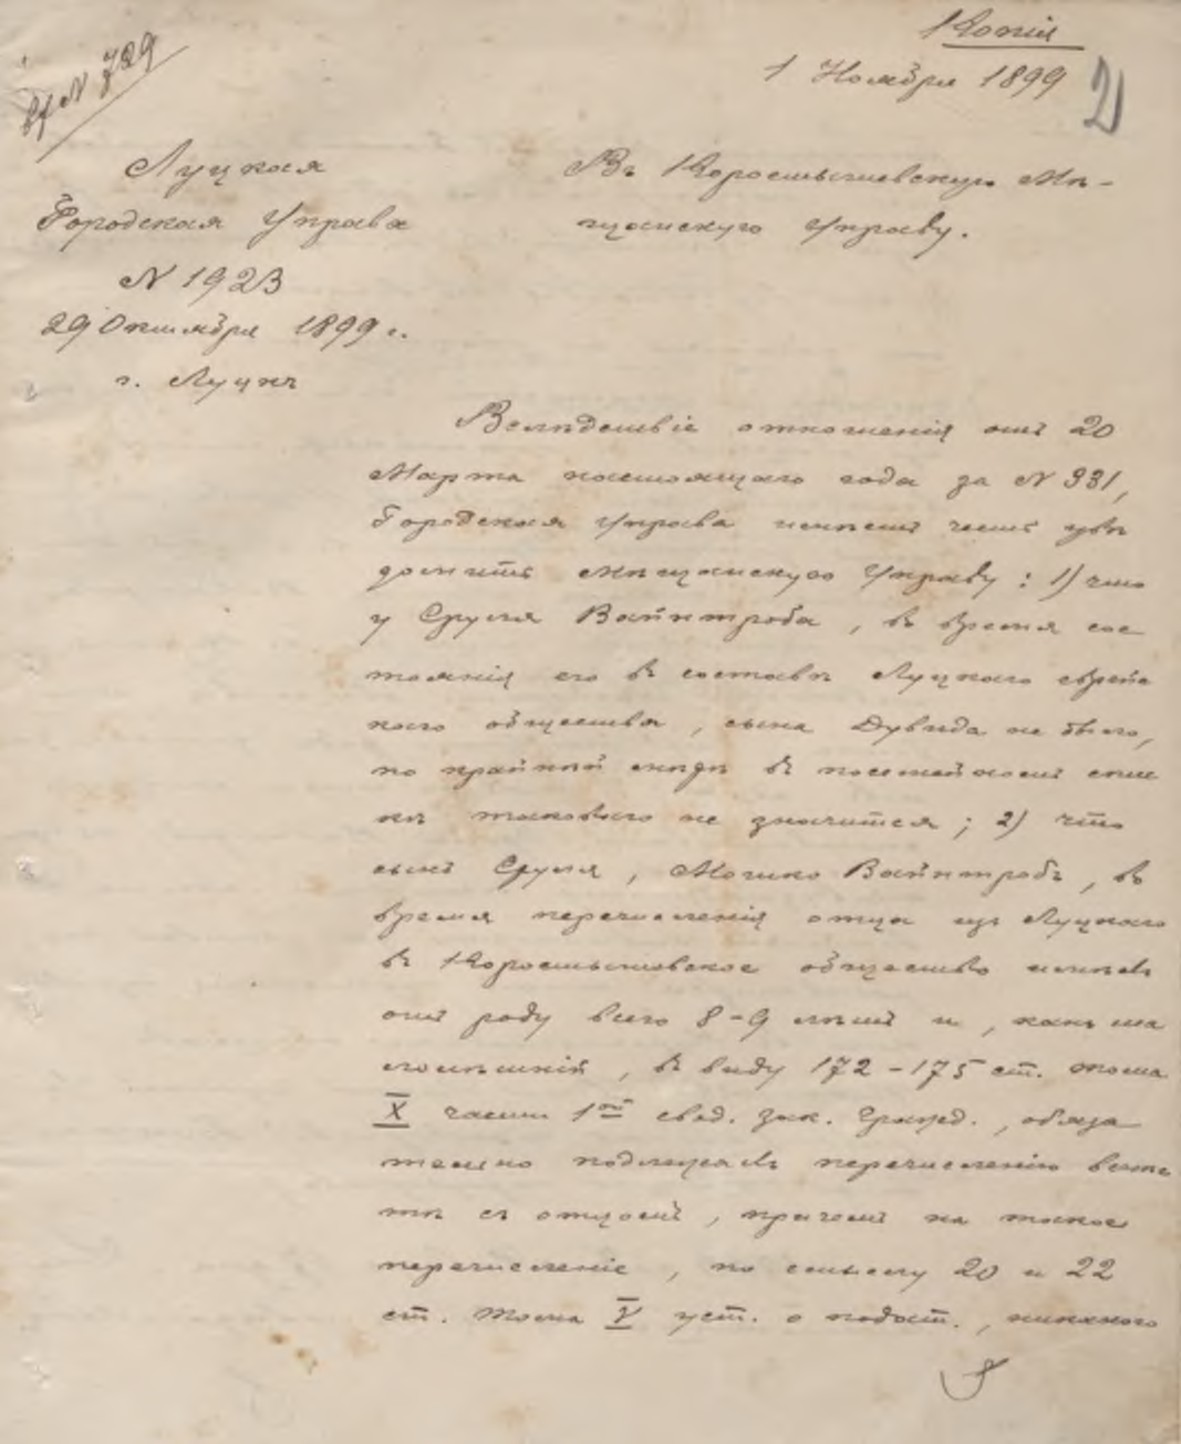 Копія
1 Ноября 1899
2
вх N 729
Луцкая
Городская Управа
N 1923
29 Октября 1899 г.
г. Луцкъ
Въ Коростышевскую Мѣ-
щанскую Управу.
Вслѣдствіе отношенія отъ 20
Марта настоящаго года за N 331,
Городская Управа имѣетъ честь увѣ
домить Мѣщанскую Управу: 1) что
у Сруля Вайнтроба, въ время сос
тоянія его въ составѣ Луцкаго еврейс
каго общества, сына Дувида не было,
по крайней мѣрѣ въ посемейномъ спис
кѣ таковаго не значится; 2) что
сынъ Сруля, Мошко Вайнтробъ, въ
время перечисленія отца изъ Луцкаго
въ Коростышевское общество имѣлъ
отъ роду всего 8-9 лѣтъ и, какъ ма
лолѣтній, въ виду 172-175 ст. тома
X части 1ой свод. зак. Гражд., обяза
тельно подлежалъ перечисленію вмѣс
тѣ съ отцомъ, причемъ на такое
перечисленіе, по смыслу 20 и 22
ст. тома V уст. о подат., никакого